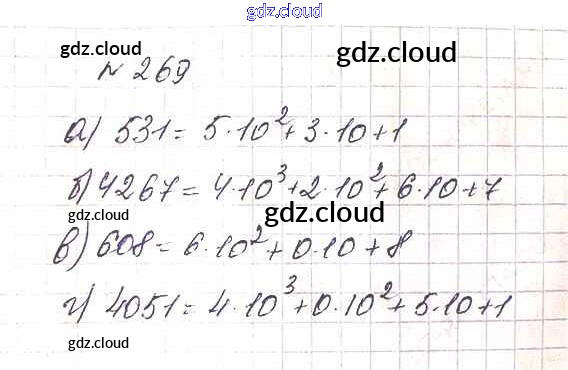 gdz.cloud
gdz.cloud
gdz.cloud
№ 269
а) 531 = 5·10²+3·10+1
gdz.cloud
б) 4267 = 4·10³+2·10²+6·10+7
gdz.cloud
gdz.cloud
в) 608 = 6·10²+0·10+8
г) 4051 = 4·10³+0·10²+5·10+1
gdz.cloud
gdz.cloud